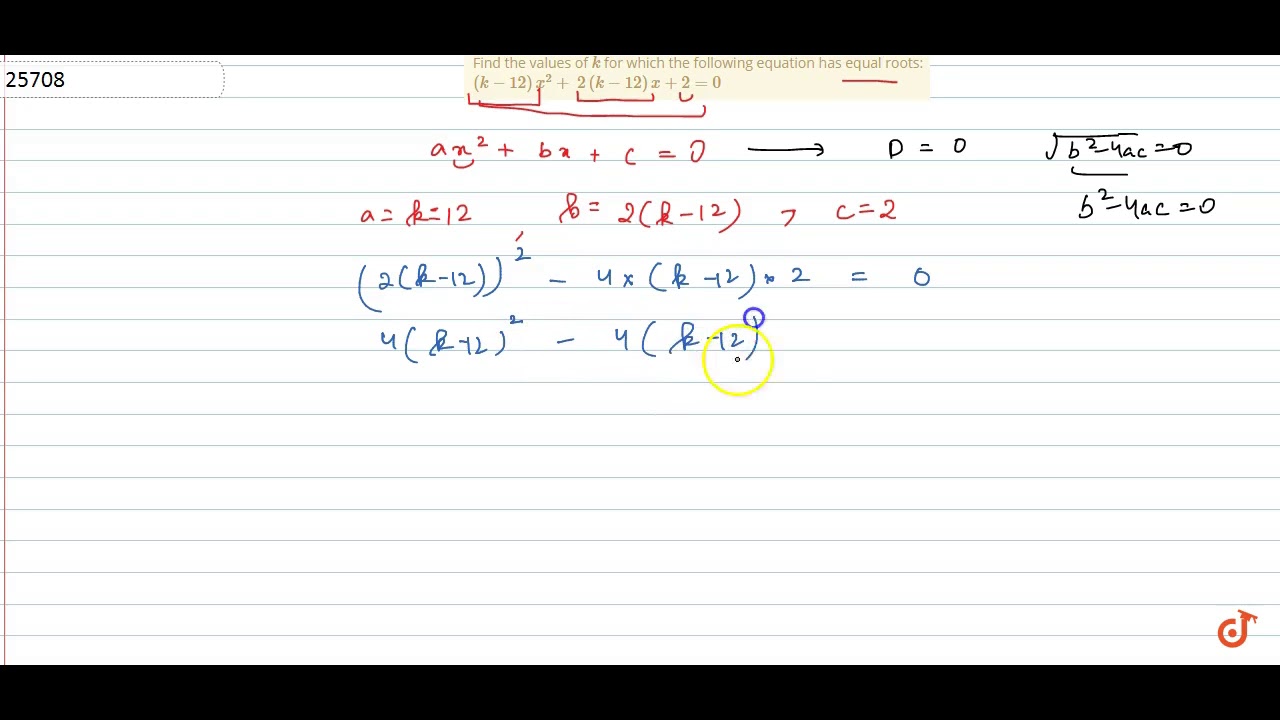 25708
Find the values of k for which the following equation has equal roots:
(k − 12) x² + 2 (k − 12) x + 2 = 0
ax² + bx + c = 0 ⟶ D = 0 √b²-4ac = 0
a = k-12 , b = 2(k-12) , c = 2 b²-4ac = 0
(2(k-12))² - 4 × (k-12) × 2 = 0
4(k-12)² - 4(k-12)